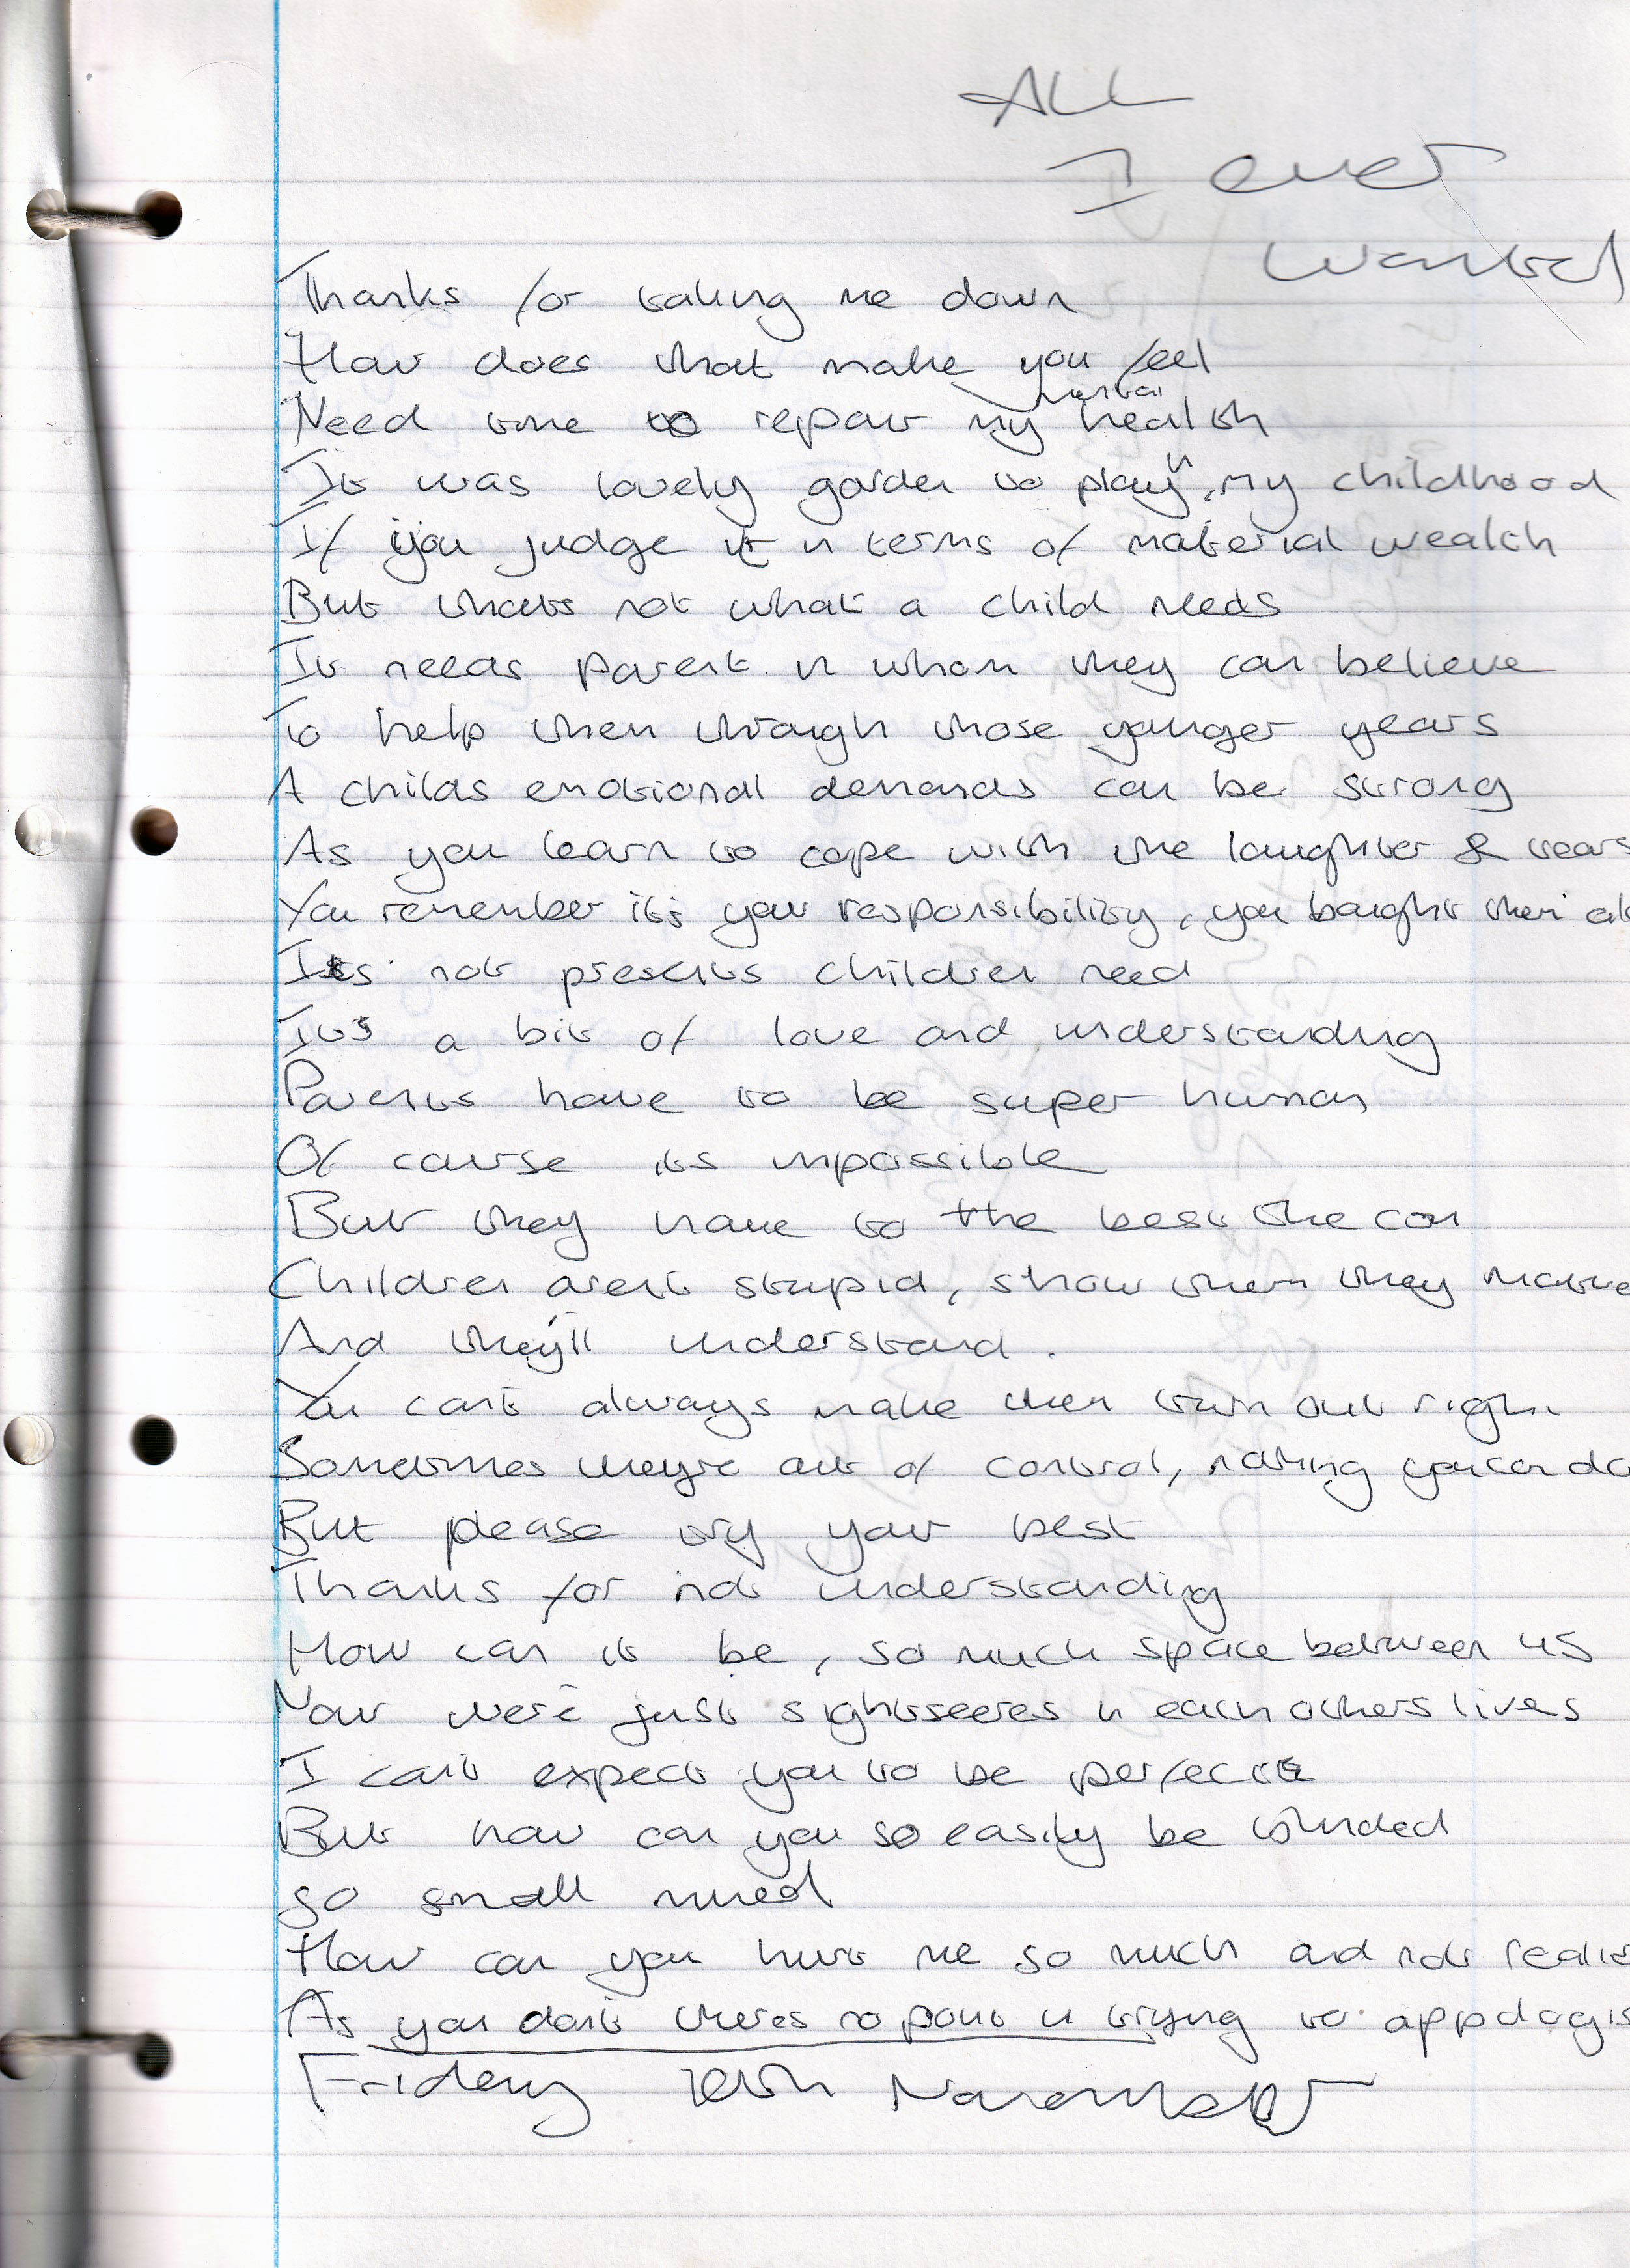 All
I ever
wanted
Thanks for taking me down
How does that make you feel
mental
Need time to repair my health
It was lovely garden to play in, my childhood
If you judge it in terms of material wealth
But thats not what a child needs
It needs parent in whom they can believe
To help them through those younger years
A childs emotional demands can be strong
As you learn to cope with the laughter & tears
You remember it's your responsibility, you bought them
Its not presents children need
It's a bit of love and understanding
Parents have to be super human
Of course its impossible
But they have to the best the can
Children aren't stupid, show them they
And they'll understand.
You can't always make them turn out right
Sometimes they're out of control, nothing you can do
But please try your best
Thanks for not understanding
How can it be, so much space between us
Now we're just sightseeres in each others lives
I can't expect you to be perfect
But how can you so easily be blinded
so small mined
How can you hurt me so much and not
As you don't theres no point in trying to
Friday November